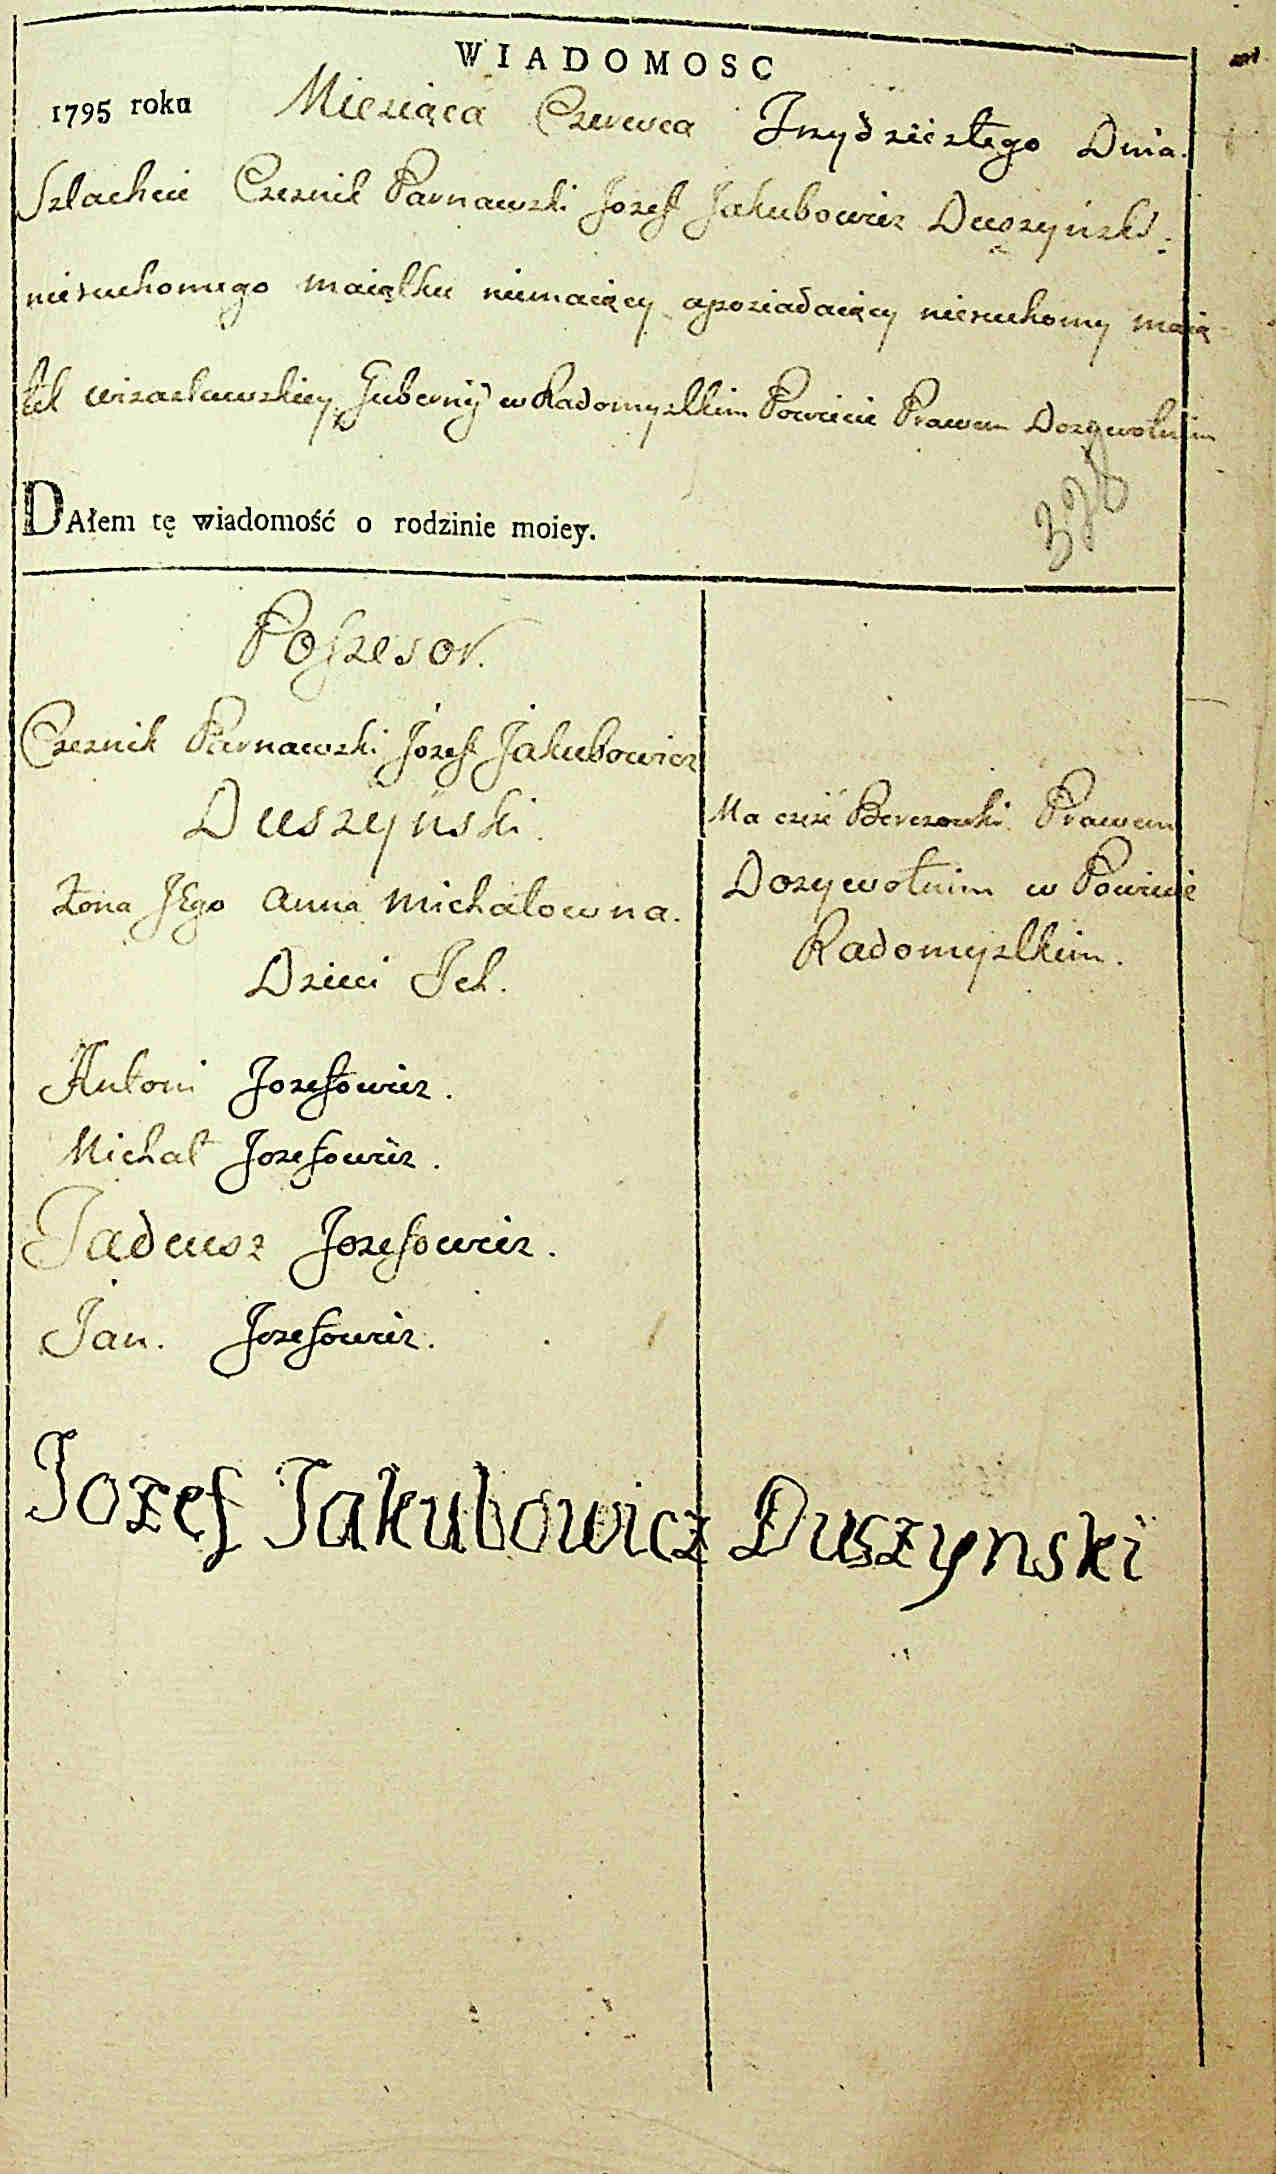 WIADOMOSC
1795 roku Miesiąca Czerwca Trzydziestego Dnia.
Szlachcic Czesnik Parnawski Jozef Jakubowicz Duszyński
nieruchomego maiątku niemaiący aposiadaiący nieruchomy maią
tek wizasławskiey Gubernij w Radomyslkim Powiecie Prawem Dozywotnim
378
DAłem tę wiadomość o rodzinie moiey.
Possesor.
Czesnik Parnawski Józef Jakubowicz
Duszyński.
Żona JEgo Anna Michałowna.
Dzieci Ich.
Antoni Jozefowicz.
Michał Jozefowicz.
Tadeusz Jozefowicz.
Jan. Jozefowicz.
Ma częsć Berezowki Prawem
Dozywotnim w Powiecie
Radomyslkim.
Jozef Jakubowicz Duszynski